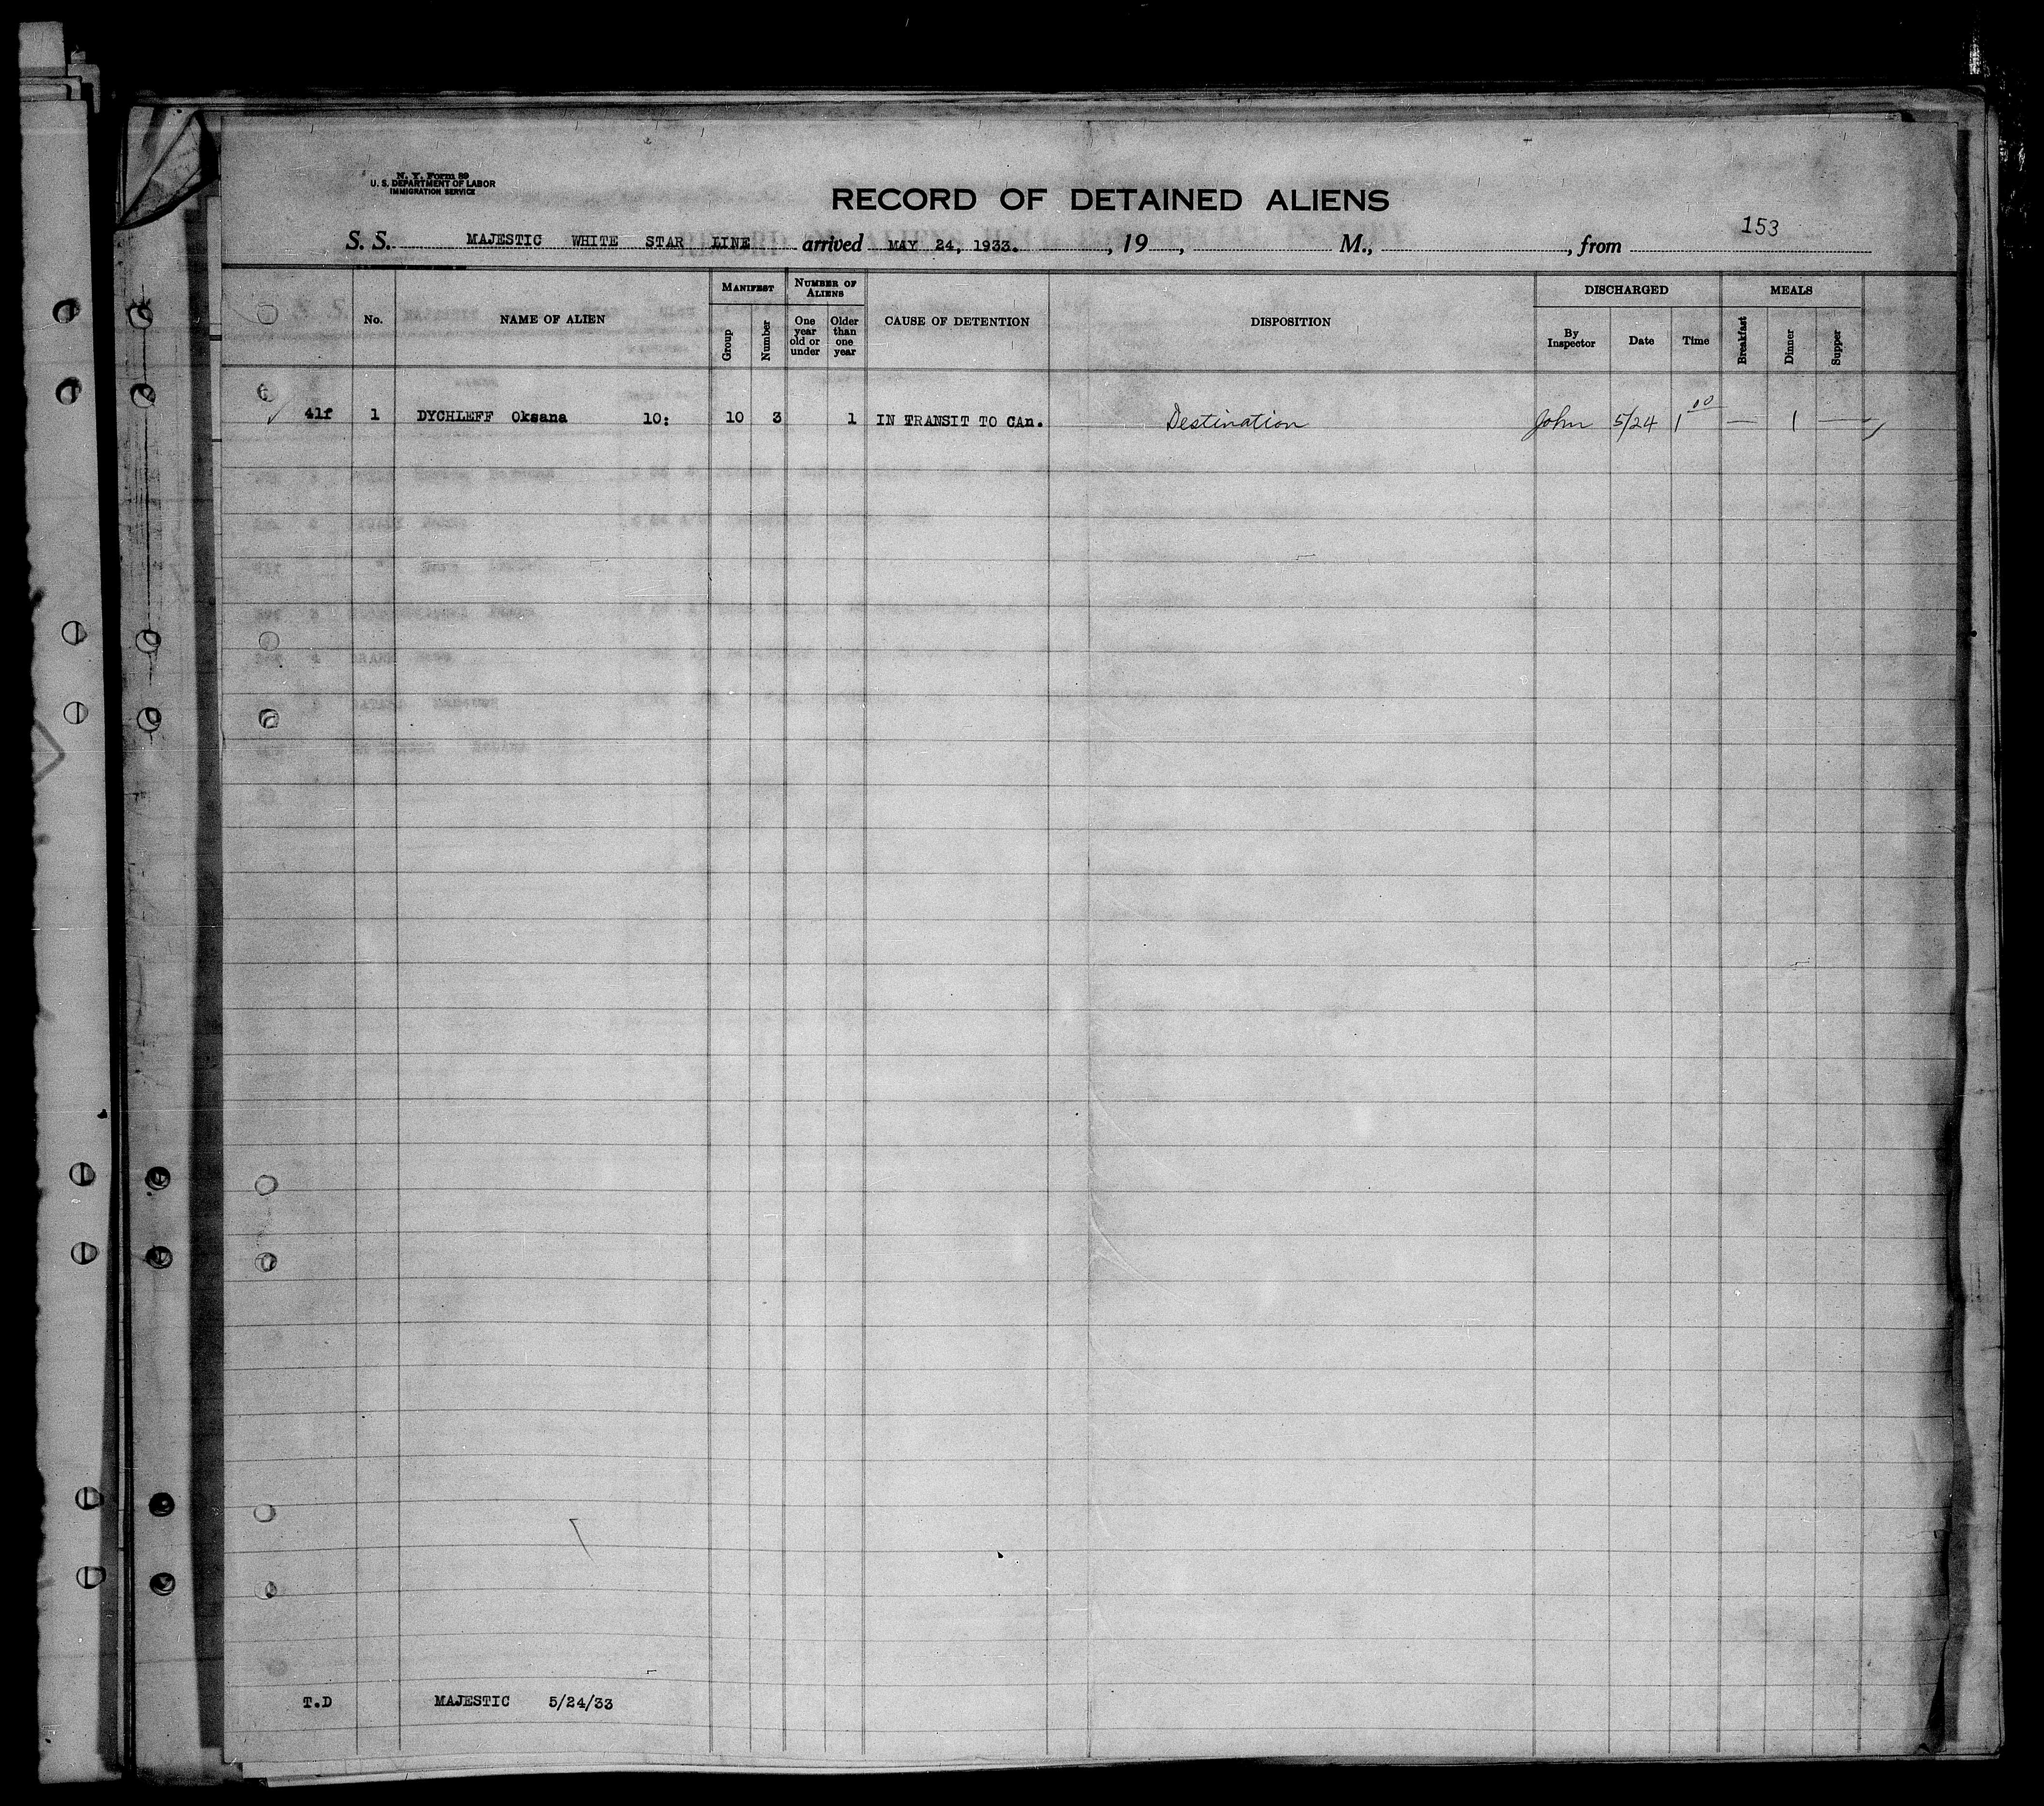 N. Y. Form 89
U. S. DEPARTMENT OF LABOR
IMMIGRATION SERVICE
RECORD OF DETAINED ALIENS
153
S. S. MAJESTIC WHITE STAR LINE arrived MAY 24, 1933. , 19 , M., , from
No. NAME OF ALIEN MANIFEST Group Number NUMBER OF ALIENS One year old or under Older than one year CAUSE OF DETENTION DISPOSITION DISCHARGED By Inspector Date Time MEALS Breakfast Dinner Supper
41f 1 DYCHLEFF Oksana 10: 10 3 1 IN TRANSIT TO CAn. Destination John 5/24 1 00 — 1 —
T.D MAJESTIC 5/24/33